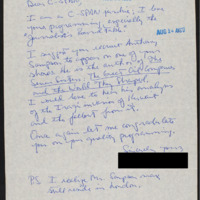 Dear C-SPAN,
I am a C-SPAN junkie; I love
your programming, especially the
Journalists Roundtable.
AUG 24 REC'D
I suggest you recruit Anthony
Sampson to appear on one of your
shows. He is the author of The
Seven Sisters, The
and the World They Shaped.
I would love to hear his analysis
of the Iraqi invasion of Kuwait
and the fallout from it.
Once again let me congratulate
you on your quality programming.
Sincerely yours,
P.S. I realize Mr. Sampson may
still reside in London.